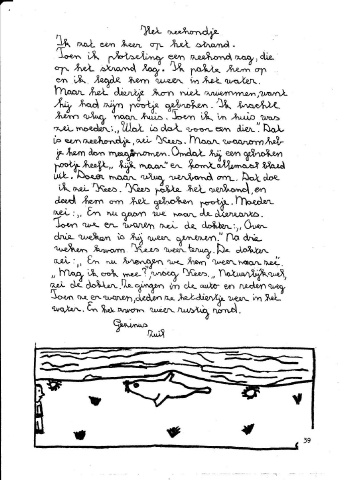 Het zeehondje.
Ik zat een keer op het strand.
Toen ik plotseling een zeehond zag, die
op het strand lag. Ik pakte hem op
en ik legde hem weer in het water.
Maar het diertje kon niet zwemmen, want
hij had zijn pootje gebroken. Ik brachte
hem vlug naar huis. Toen ik in huis was
zei moeder: „Wat is dat voor een dier". Dat
is een zeehondje, zei Kees. Maar waarom heb
je hem dan meegenomen. Omdat hij een gebroken
pootje heeft „kijk maar" er komt allemaal bloed
uit. Doe er maar vlug verband om. Dat doe
ik zei Kees. Kees pakte het verband, en
deed hem om het gebroken pootje. Moeder
zei: „En nu gaan we naar de dierenarts.
Toen we er waren zei de dokter: „Over
drie weken is hij weer genezen." Na drie
weken kwam Kees weer terug. De dokter
zei: „En nu brengen we hem weer naar zee".
„Mag ik ook mee?" vroeg Kees. „Natuurlijk wel,
zei de dokter. Ze gingen in de auto en reden weg
Toen ze er waren, deden ze het diertje weer in het
water. En het zwom weer rustig rond.
Gezinus
Zuil
39